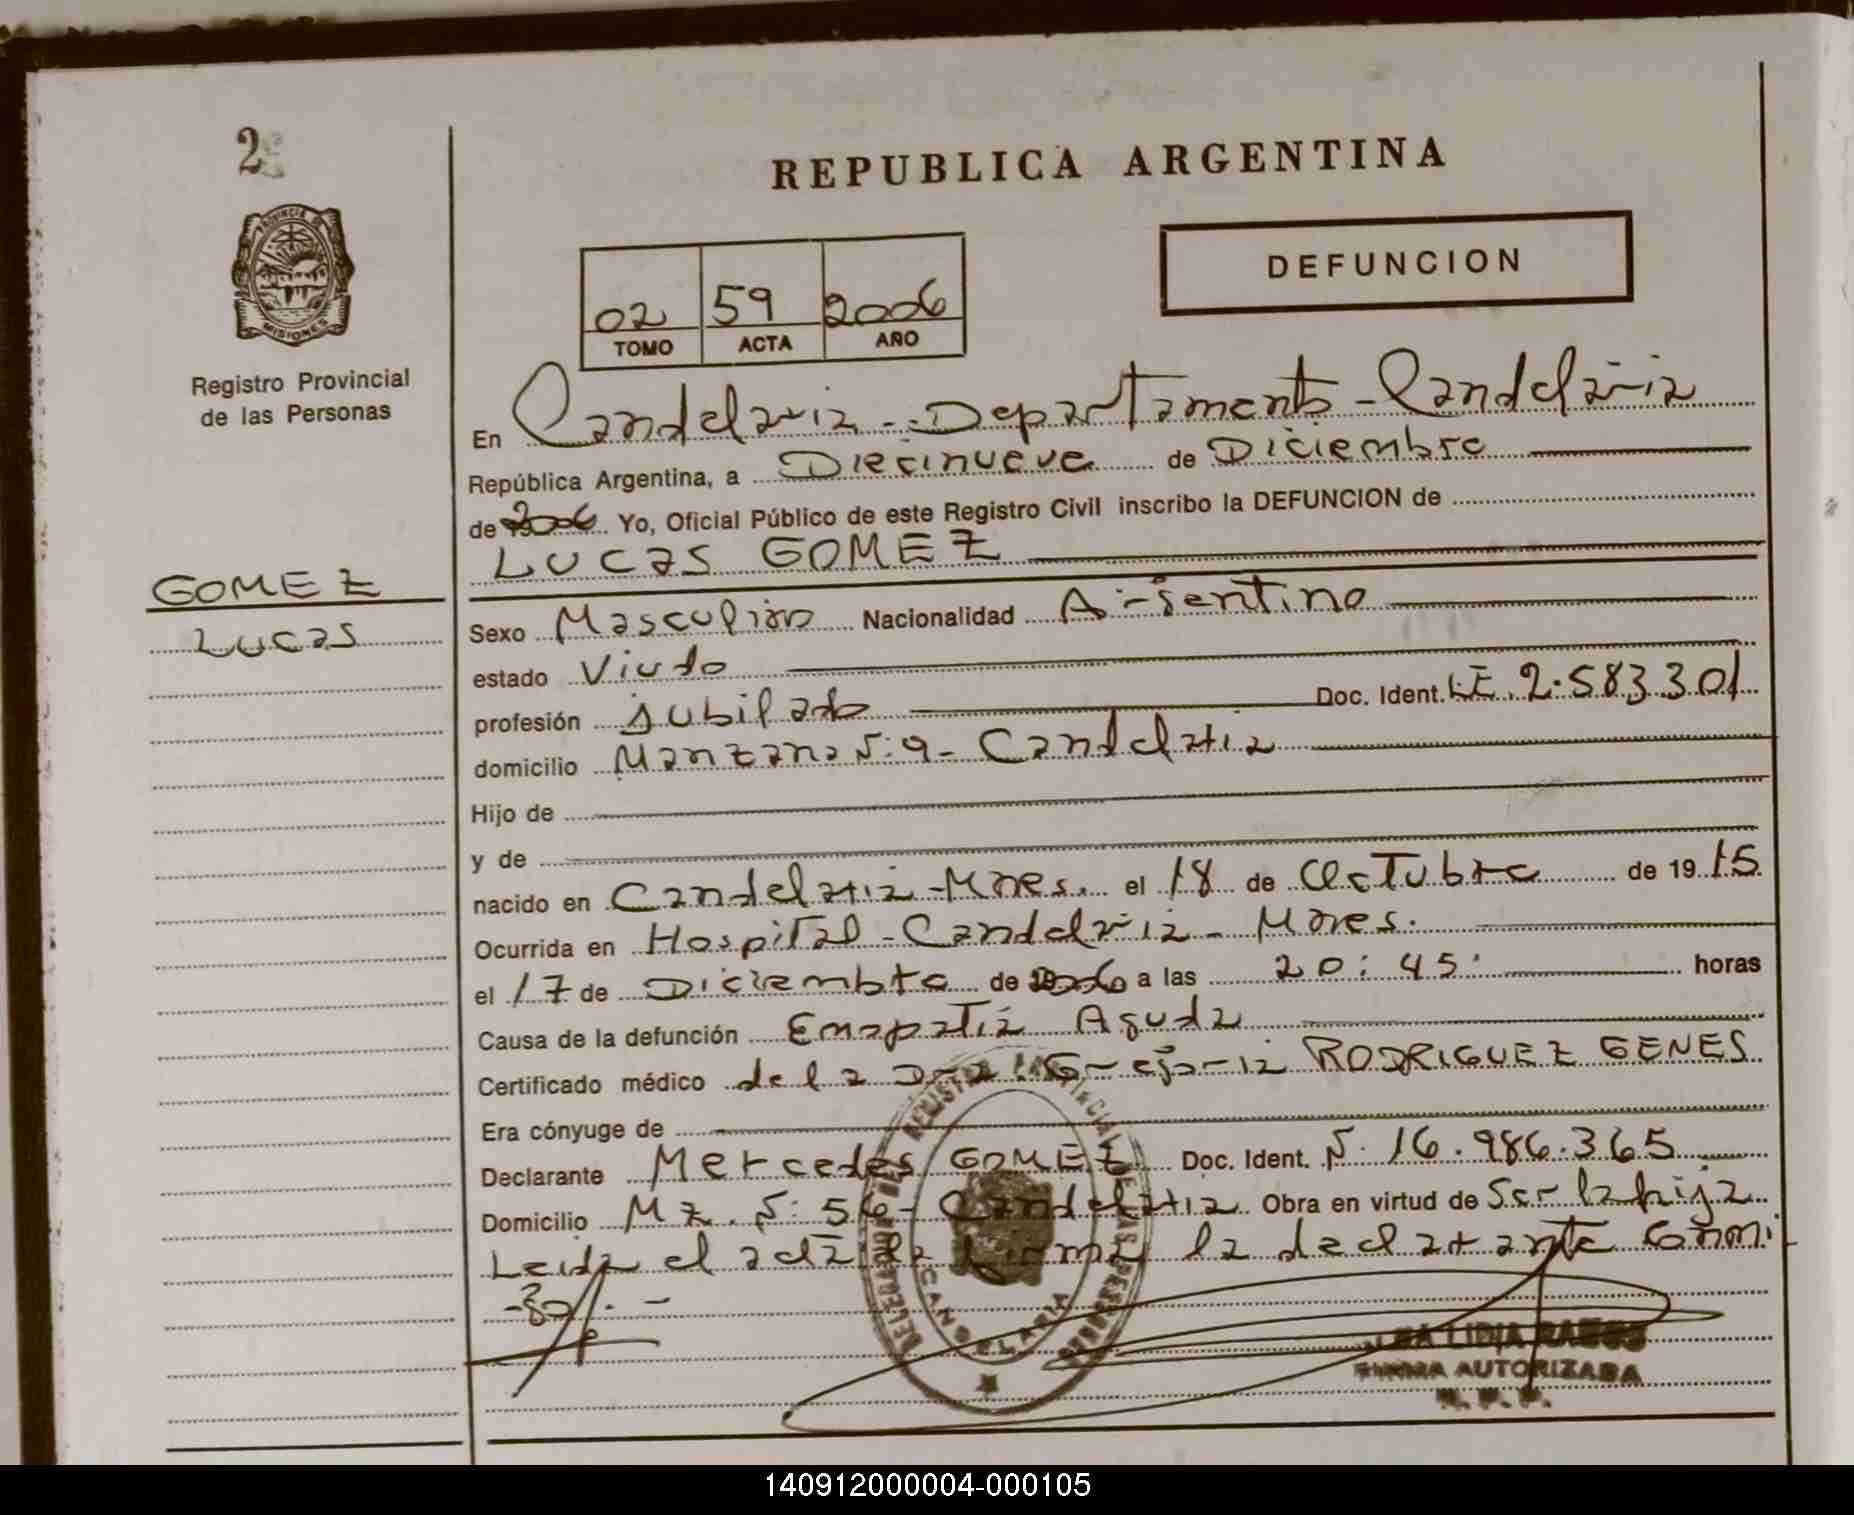 2
PROVINCIA DE
MISIONES
Registro Provincial
de las Personas
GOMEZ
Lucas
REPUBLICA ARGENTINA
DEFUNCION
02 59 2006
TOMO ACTA AÑO
En Candelaria - Departamento - Candelaria
República Argentina, a Diecinueve de Diciembre
de 2006 Yo, Oficial Público de este Registro Civil inscribo la DEFUNCION de
LUCAS GOMEZ
Sexo Masculino Nacionalidad Argentino
estado Viudo
profesión jubilado Doc. Ident. LE. 2.583301
domicilio Manzana N: 9 - Candelaria
Hijo de
y de
nacido en Candelaria - Mnes. el 18 de Octubre de 1915
Ocurrida en Hospital - Candelaria - Mnes.
el 17 de Diciembre de 2006 a las 20:45' horas
Causa de la defunción Emapatia Aguda
Certificado médico de la Dra. Gregoria RODRIGUEZ GENES
Era cónyuge de
Declarante Mercedes GOMEZ Doc. Ident. N: 16.986.365
Domicilio MZ. N: 56 - Candelaria Obra en virtud de Ser la hija
Leida el acta la firma la declarante Conmi
-go.-
CANDELARIA
LIDIA RAMOS
FIRMA AUTORIZADA
R. P. P.
140912000004-000105